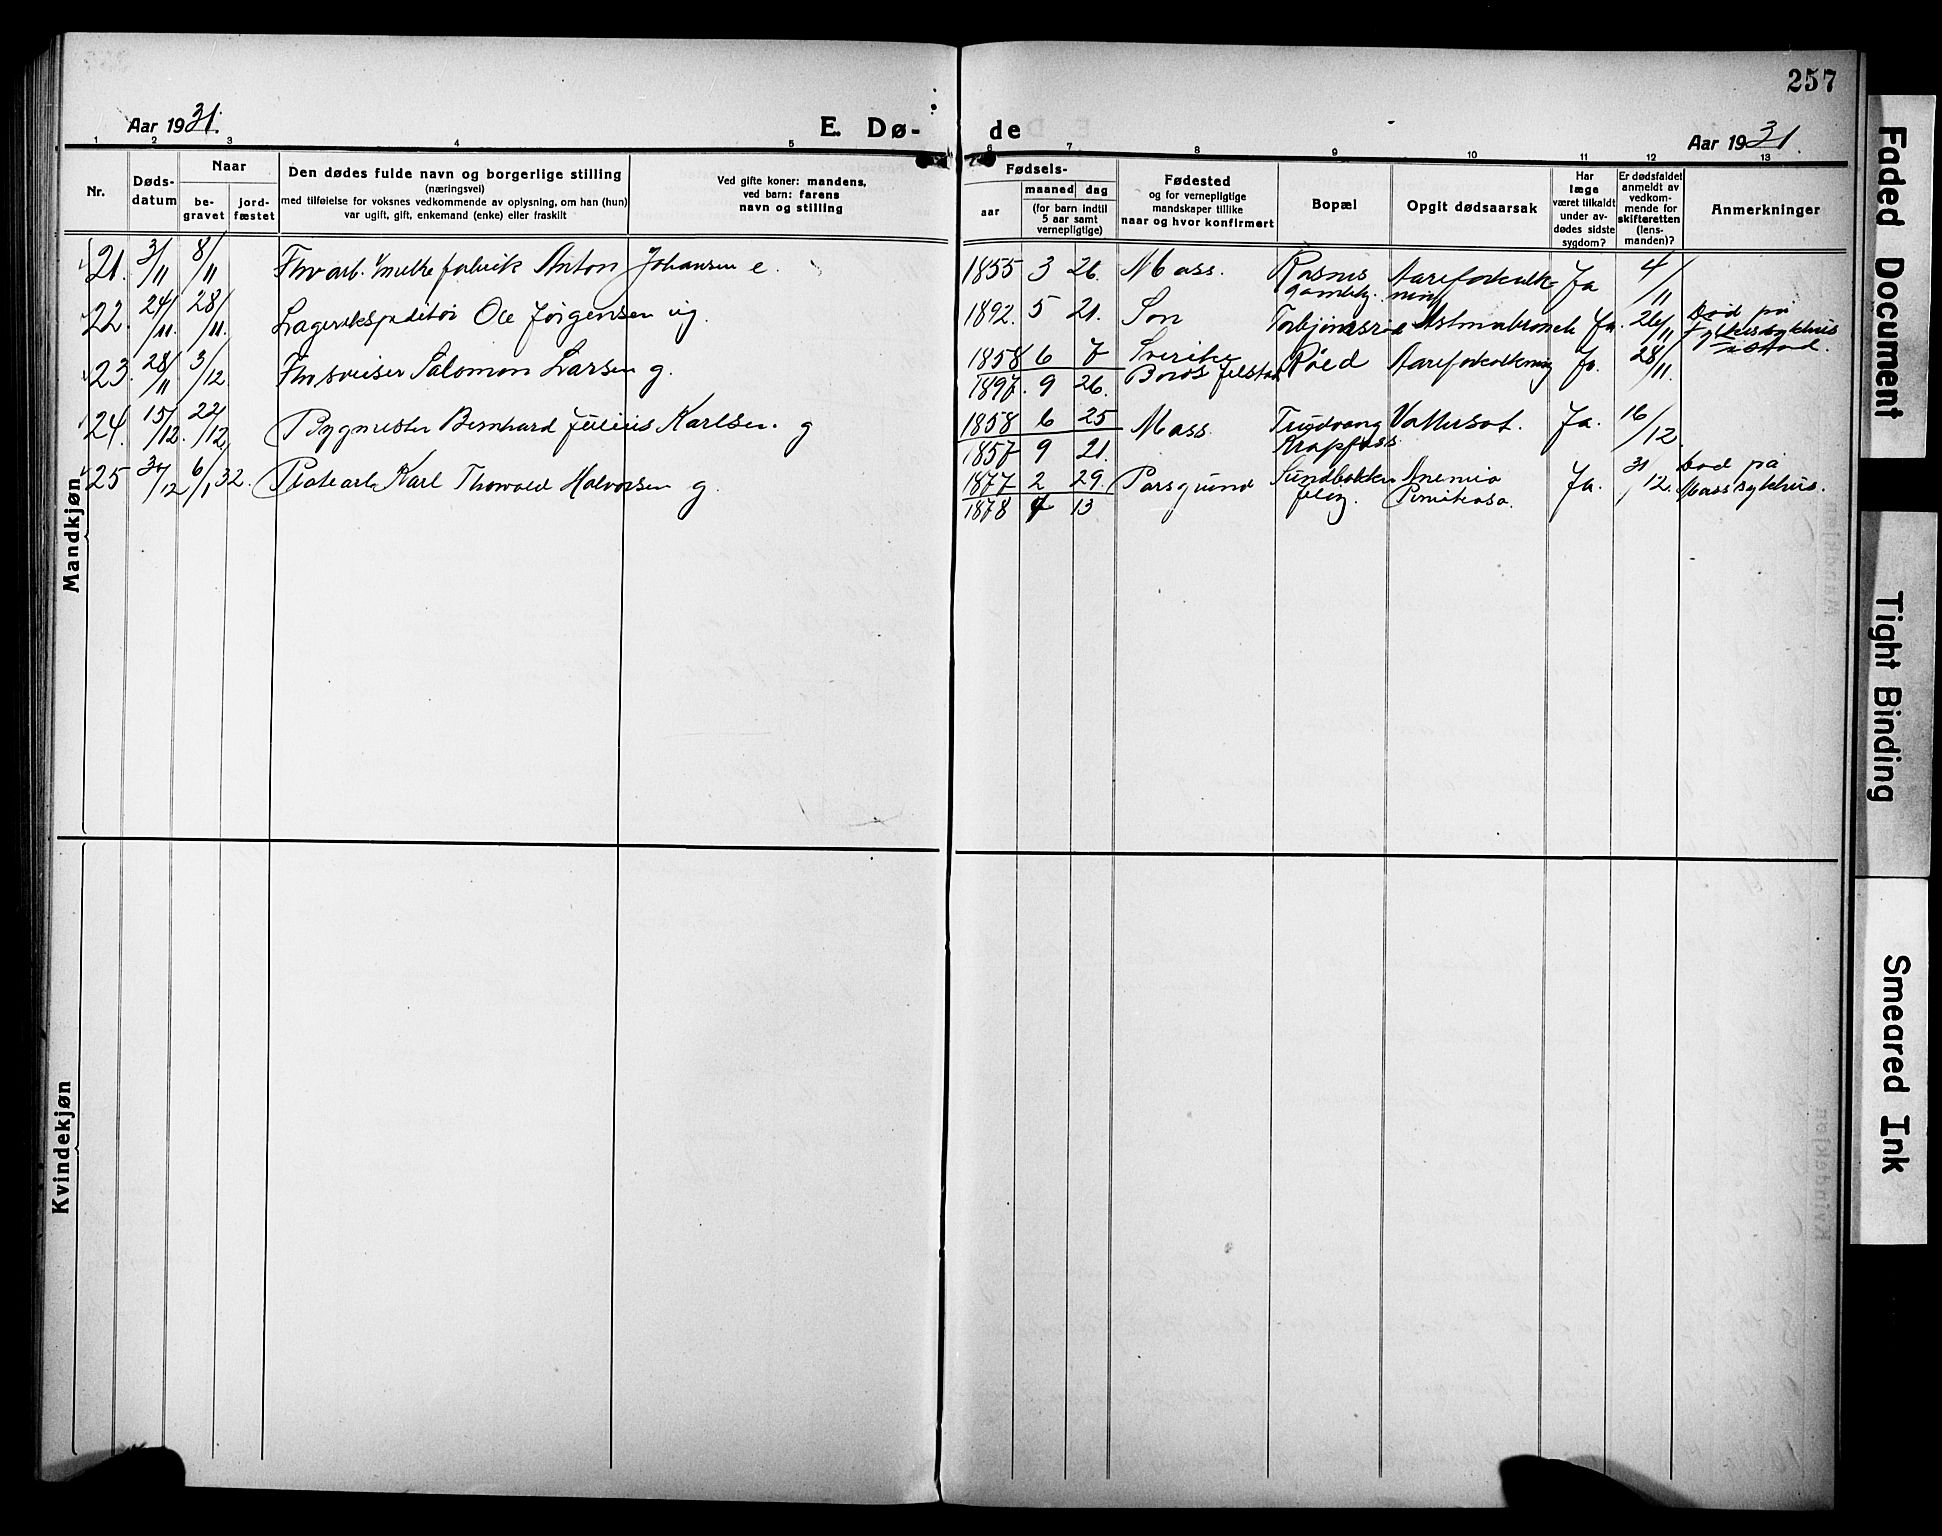 257
Aar 1931.
E. Dø-
de
Aar 1931.
1 2 3 4 5 6 7 8 9 10 11 12 13
Nr.
Døds-
datum
Naar
be-
gravet
jord-
fæstet
Den dødes fulde navn og borgerlige stilling
(næringsvei)
med tilføielse for voksnes vedkommende av oplysning, om han (hun)
var ugift, gift, enkemand (enke) eller fraskilt
Ved gifte koner: mandens,
ved barn: farens
navn og stilling
Fødsels-
aar
maaned dag
(for barn indtil
5 aar samt
vernepligtige)
Fødested
og for vernepligtige
mandskaper tillike
naar og hvor konfirmert
Bopæl
Opgit dødsaarsak
Har
læge
været tilkaldt
under av-
dødes sidste
sygdom?
Er dødsfaldet
anmeldt av
vedkom-
mende for
skifteretten
(lens-
manden)?
Anmerkninger
Mandkjøn
21. 3/11 8/11 Fhv arb. v/ melkefabrik Anton Johansen e. 1855 3 26 Moss. Aareforkalk- Ja 4/11
ning
22. 24/11. 28/11. Lagerekspeditør Ole Jørgensen ug. 1892. 5 21. Son Ja. 26/11 Død på
Fylkessykehus
23. 28/11 3/12. Fhv sveiser Salomon Larsen g. 1858 6 7 Sverike Röed Aareforkalkning Ja. 28/11.
1897. 9 26.
24. 15/12. 22/12 Bygmester Bernhard Julius Karlsen. g 1858 6 25 Moss. Trudvang Vattersot. Ja. 16/12.
1857 9 21. Krapfoss
25 6/1 32. Platearb. Karl Thorvald Halvorsen g. 1877 2 29. Porsgrund Sundbakken Anemia Ja. 31/12. Død på
1878 7 13 Jeløy. Moss sykehus.
Kvindekjøn
Faded Document
Tight Binding
Smeared Ink